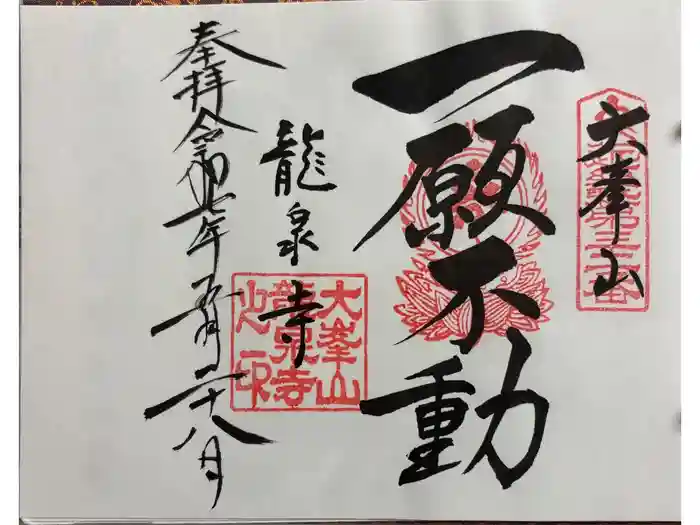 大峯山
一願不動
龍泉寺
奉拝 令和七年五月二十八日
大峯山
龍泉寺
之印